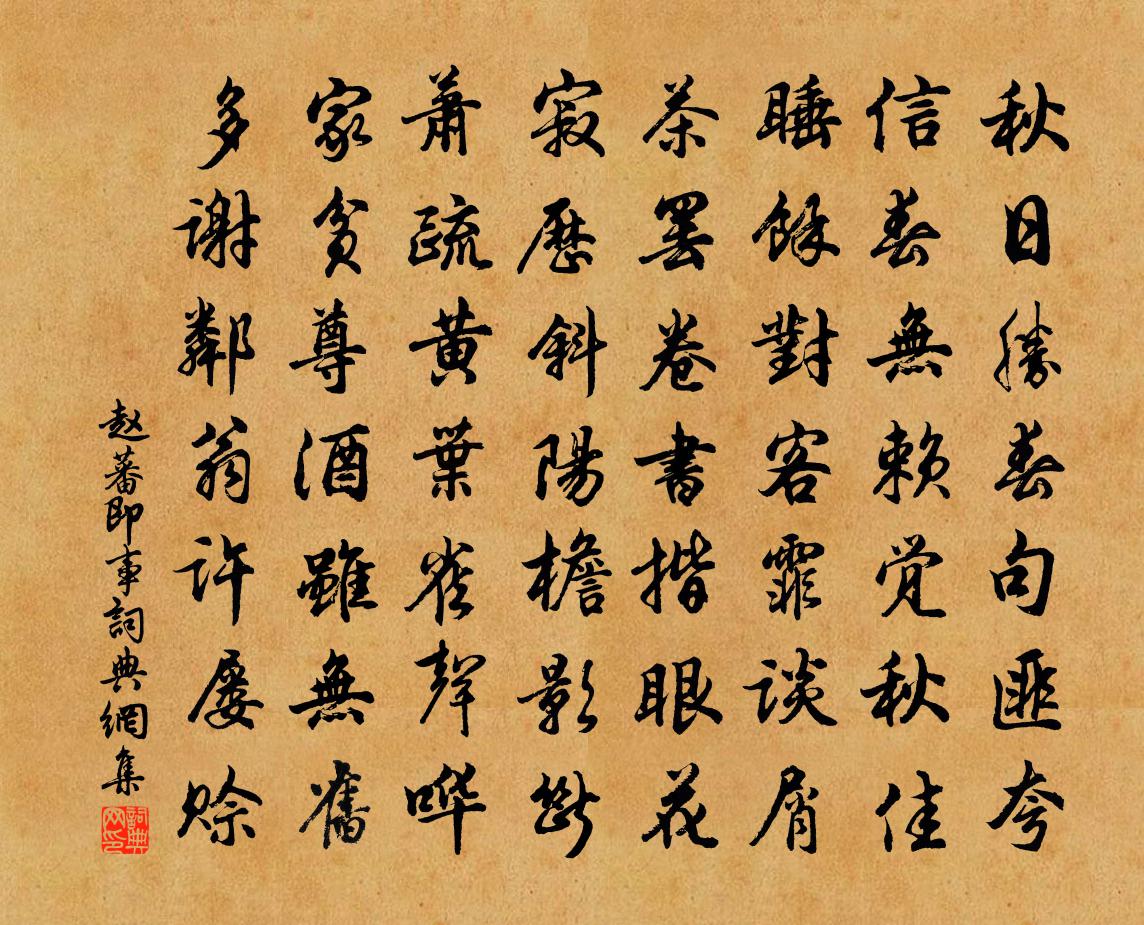 秋日勝春句匪夸
信春無賴覺秋佳
睡餘對客霏談屑
茶罢卷書揩眼花
寂歷斜陽檐影斷
蕭疏黄葉雀聲嘩
家貧尊酒雖無舊
多謝鄰翁許屢賒
赵蕃即事詞典網集
詞典网印